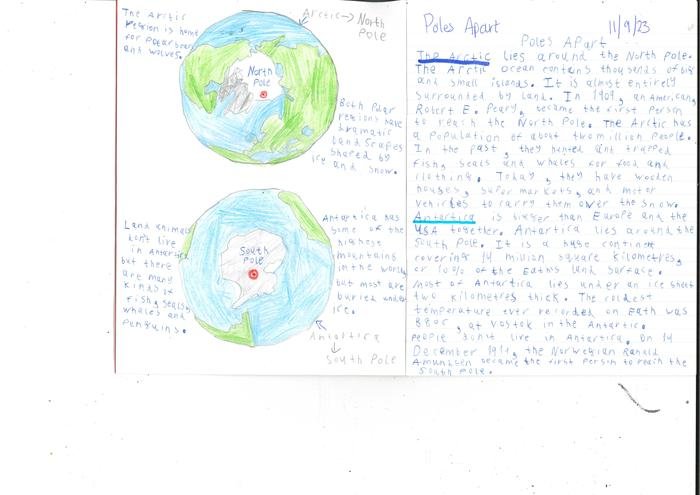 The Arctic
region is home
for Polar bears
and wolves.
Arctic → North
Pole
North
Pole
Both Polar
regions have
dramatic
landscapes
shaped by
ice and snow.
Land animals
don't live
in Antartica
but there
are many
kinds of
fish, seals,
whales and
Penguins.
South
Pole
Antartica has
some of the
highest
mountains
in the world
but most are
buried under
ice.
Antartica
South Pole
Poles Apart 11/9/23
Poles Apart
The Arctic lies around the North Pole.
The Arctic ocean contains thousands of big
and small islands. It is almost entirely
surrounded by land. In 1909, an American,
Robert E. Peary, became the first Person
to reach the North Pole. The Arctic has
a Population of about two million People.
In the past, they hunted and trapped
fish, seals and whales for food and
clothing. Today, they have wooden
houses, super markets, and motor
vehicles to carry them over the snow.
Antartica is bigger than Europe and the
USA together. Antartica lies around the
South Pole. It is a huge continent
covering 14 million square kilometres,
or 10% of the Eaths land surface.
Most of Antartica lies under an ice sheet
two kilometres thick. The coldest
temperature ever recorded on Eath was
, at Vostok in the Antartic.
People don't live in Antartica. On 14
December 1911, the Norwegian
Amundsen became the first Person to reach the
South Pole.